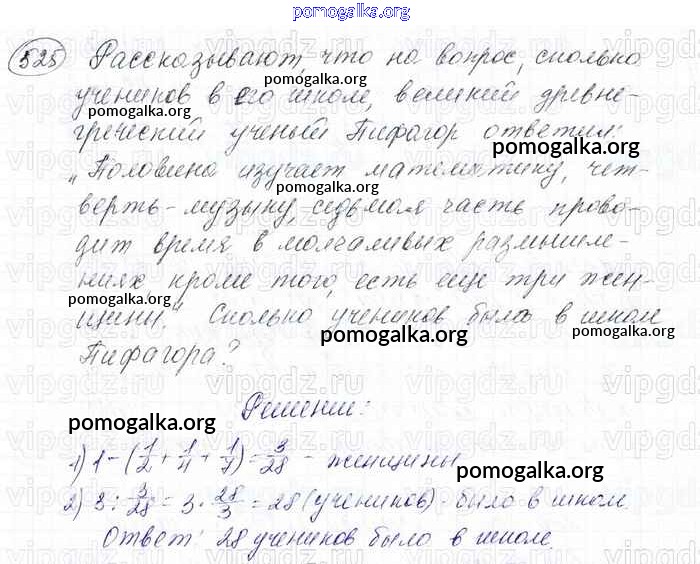 pomogalka.org
525 Рассказывают, что на вопрос, сколько
pomogalka.org
учеников в его школе, великий древне-
pomogalka.org
греческий ученый Пифагор ответил:
pomogalka.org
„Половина изучает математику, чет-
pomogalka.org
верть - музыку, седьмая часть прово-
дит время в молчаливых размышле-
ниях, кроме того, есть еще три жен-
pomogalka.org
щины." Сколько учеников было в школе
pomogalka.org pomogalka.org
Пифагора?
Решение:
pomogalka.org
1) 1 - (1/2 + 1/4 + 1/7) = 3/28 - женщины
pomogalka.org
2) 3 : 3/28 = 3 · 28/3 = 28 (учеников) было в школе.
Ответ: 28 учеников было в школе.